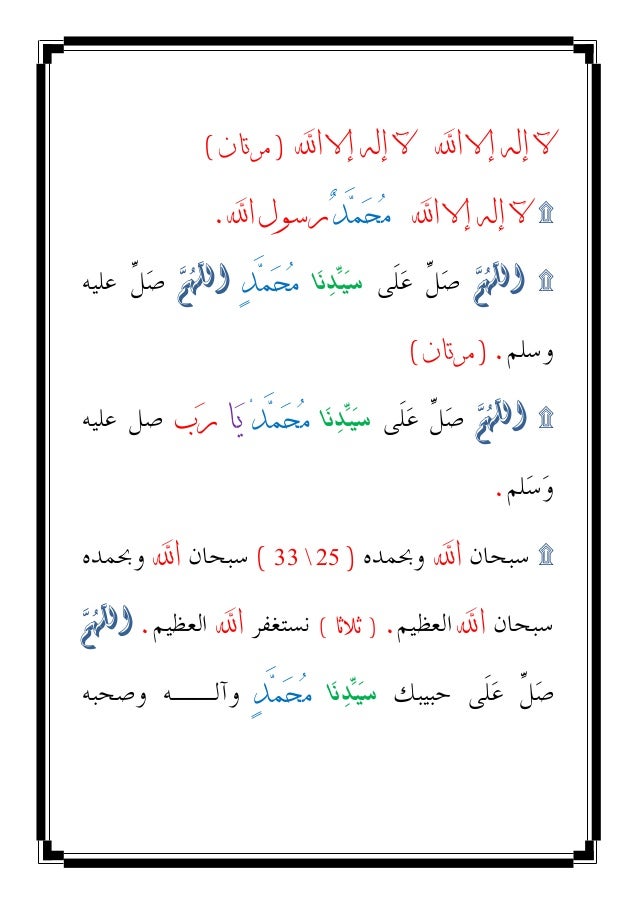 لا إله إلا الله لا إله إلا الله (مرتان)
۩ لا إله إلا الله مُحَمَّدٌ رسول الله .
۩ اللَّهُمَّ صَلِّ عَلَى سيَدِّنَا مُحَمَّدٍ اللَّهُمَّ صَلِّ عليه
وسلم . (مرتان)
۩ اللَّهُمَّ صَلِّ عَلَى سيَدِّنَا مُحَمَّدْ يَا رَب صل عليه
وَسَلم .
۩ سبحان ألله وبحمده ( 25\33 ) سبحان ألله وبحمده
سبحان ألله العظيم . ( ثلاثا ) نستغفر ألله العظيم . اللَّهُمَّ
صَلِّ عَلَى حبيبك سيَدِّنَا مُحَمَّدٍ وآلـــــه وصحبه